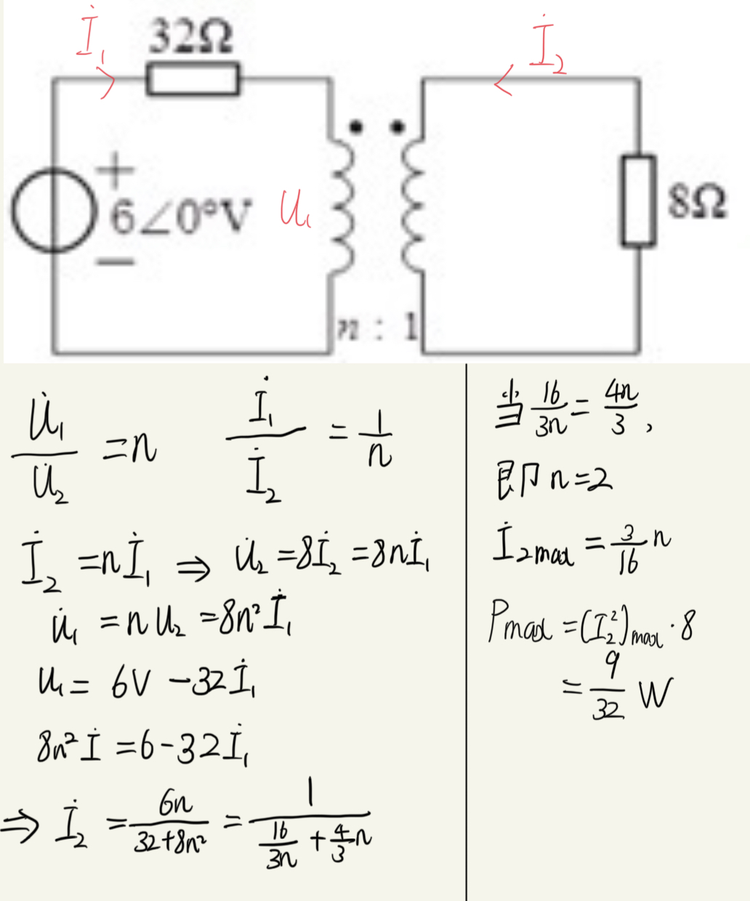 İ₁ 32Ω İ₂
+
6∠0°V U₁ 8Ω
−
n : 1
U̇₁/U̇₂ = n İ₁/İ₂ = 1/n
İ₂ = nİ₁ ⇒ U̇₂ = 8İ₂ = 8nİ₁
U̇₁ = nU₂ = 8n²İ₁
U₁ = 6V − 32İ₁
8n²İ = 6 − 32İ₁
⇒ İ₂ = 6n/(32+8n²) = 1/(16/3n + 4/3 n)
当 16/3n = 4n/3 ,
即 n = 2
İ₂max = 3/16 n
Pmax = (I₂²)max · 8
= 9/32 W